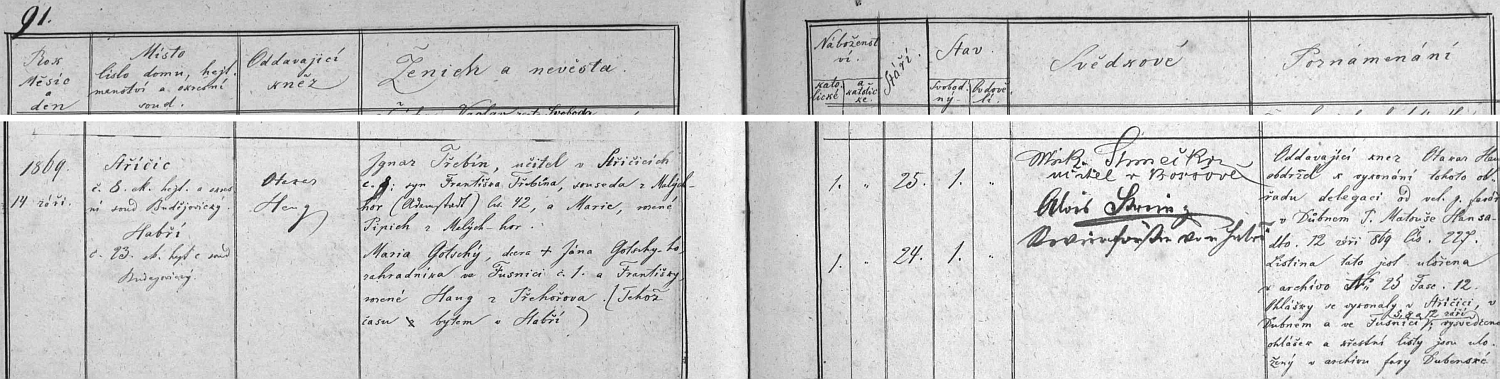 91.
Rok
Měsíc
a
den
Místo
číslo domu, hejt-
menství a okresní
soud.
Oddavající
kněz
Ženich a nevěsta.
Náboženst
ví.
kato-
lické
a
katolic
ké.
Stáří.
Stav.
Svobod-
ný.
Svědkové
Poznamenání
1869
14 září.
Střížic
č. 8. ok. hejt. a okres
ní soud Budějovický.
Habří
č. 23. ok. hejt. c soud
Budějovický.
Otakar
Haug
Ignaz Třebín, učitel v Střížicích
č. 8. syn Františka Třebína, souseda z Malých-
hor (Adamstadt) čís. 42, a Marie, rozené
Pipich z Malých hor.
Maria Gotschý, dcera + Jána Gotschy-ho
zahradníka ve Fusnici č. 1. a Františky
rozené Haug z Přehořova. (Tehož
času bytem v Habří)
1. " 25. 1. "
1. " 24. 1. "
učitel v Borově
Alois
Revierförster von Habří
Oddavající kněz Otakar Haug
obdržel k vykonání tohoto ob-
řadu delegaci od vel. p. faráře
v Dubném P. Matouše Hansa
dto. 12 září 869 čís. 227.
Listina tato jest uložena
v archivo No 25 Fasc. 12.
Ohlášky se vykonaly v Střížici, v
5, 8 a 12 září
Dubném a ve Fusnici, vysvědčení
ohlášek a křestní listy jsou ulo-
žený v archivu fary Dubenské